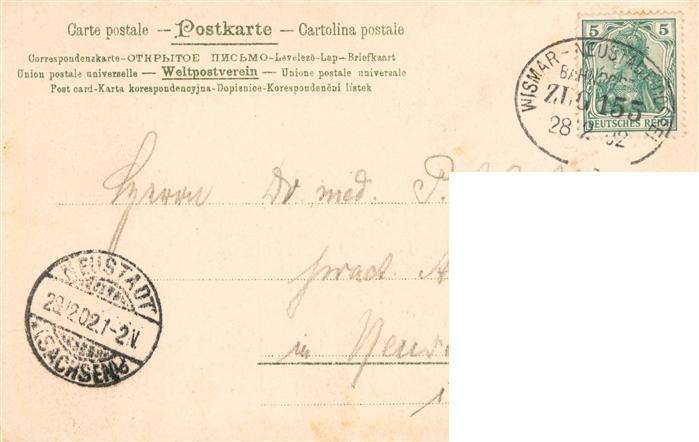 Carte postale — Postkarte — Cartolina postale
Correspondenzkarte-ОТКРЫТОЕ ПИСЬМО-Levelező-Lap-Briefkaart
Union postale universelle — Weltpostverein — Unione postale universale
Post card-Karta korespondencyjna-Dopisnice-Korespondenční lístek
5 5
WISMAR-NEUSTADT
BAHNPOST
ZUG 155
DEUTSCHES REICH
28 2 02
Herrn Dr. med. P.
pract. A
in Neus
NEUSTADT
28/2.02.1-2.V.
(SACHSEN)